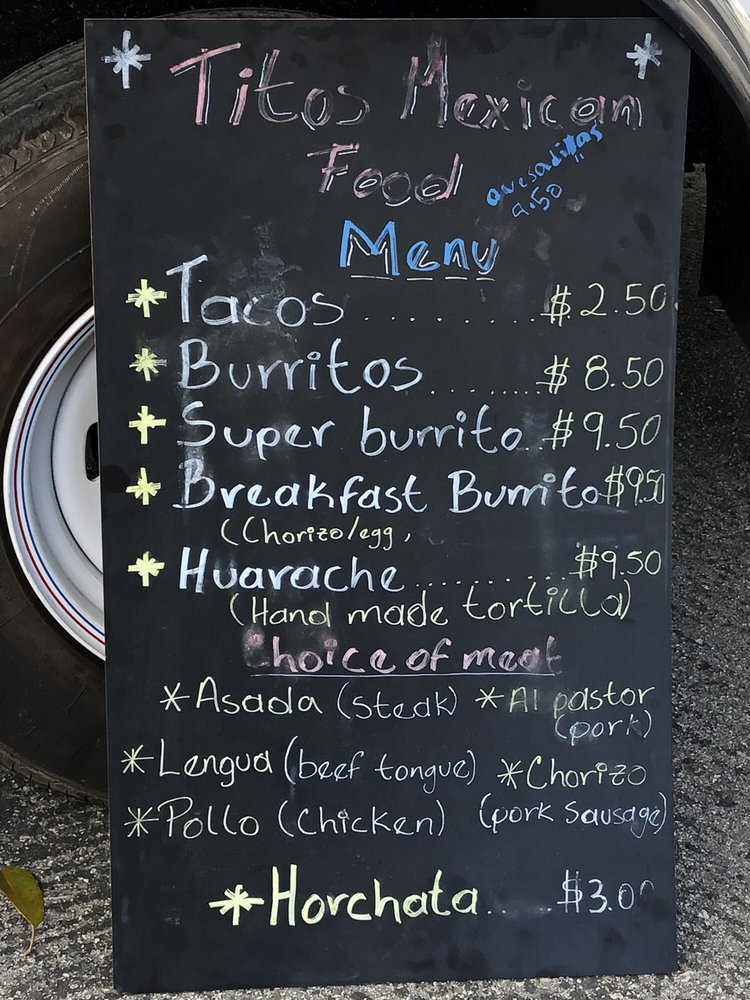 * Titos Mexican *
Food
Quesadillas
9.50
Menu
* Tacos ......... $2.50
* Burritos ......... $8.50
* Super burrito .. $9.50
* Breakfast Burrito $9.50
(Chorizo/egg,
* Huarache .......... $9.50
(Hand made tortilla)
Choice of meat
* Asada (steak) * Al pastor
(pork)
* Lengua (beef tongue) * Chorizo
* Pollo (Chicken) (pork Sausage)
* Horchata ..... $3.00